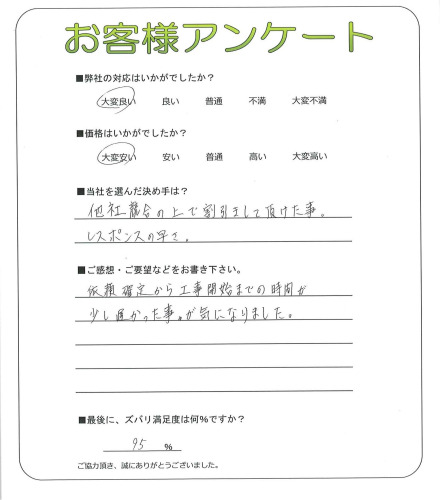 お客様アンケート
■弊社の対応はいかがでしたか?
大変良い 良い 普通 不満 大変不満
■価格はいかがでしたか?
大変安い 安い 普通 高い 大変高い
■当社を選んだ決め手は?
他社競合の上で割引きして頂けた事。
レスポンスの早さ。
■ご感想・ご要望などをお書き下さい。
依頼確定から工事開始までの時間が
少し長かった事。が気になりました。
■最後に、ズバリ満足度は何%ですか?
95 %
ご協力頂き、誠にありがとうございました。